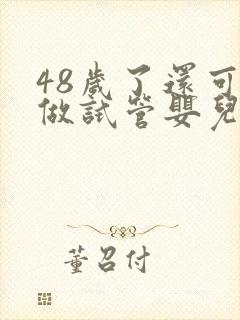 48歲了還可
做試管嬰兒
董召付